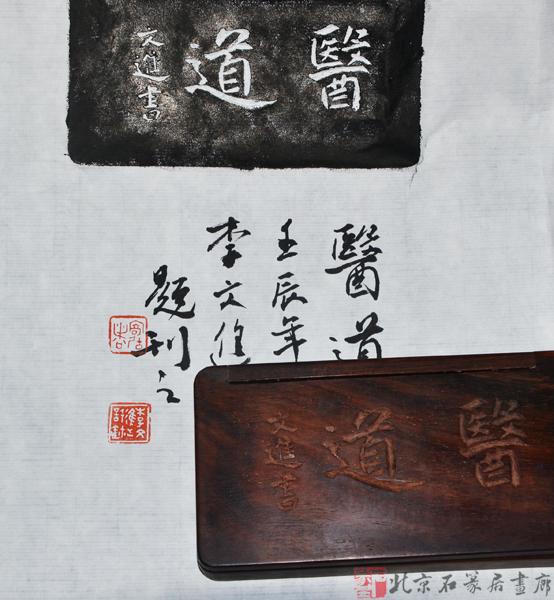 醫道
文進書
醫道
壬辰年
李文進
題刊之
醫道
文進書
北京石篆居畫廊